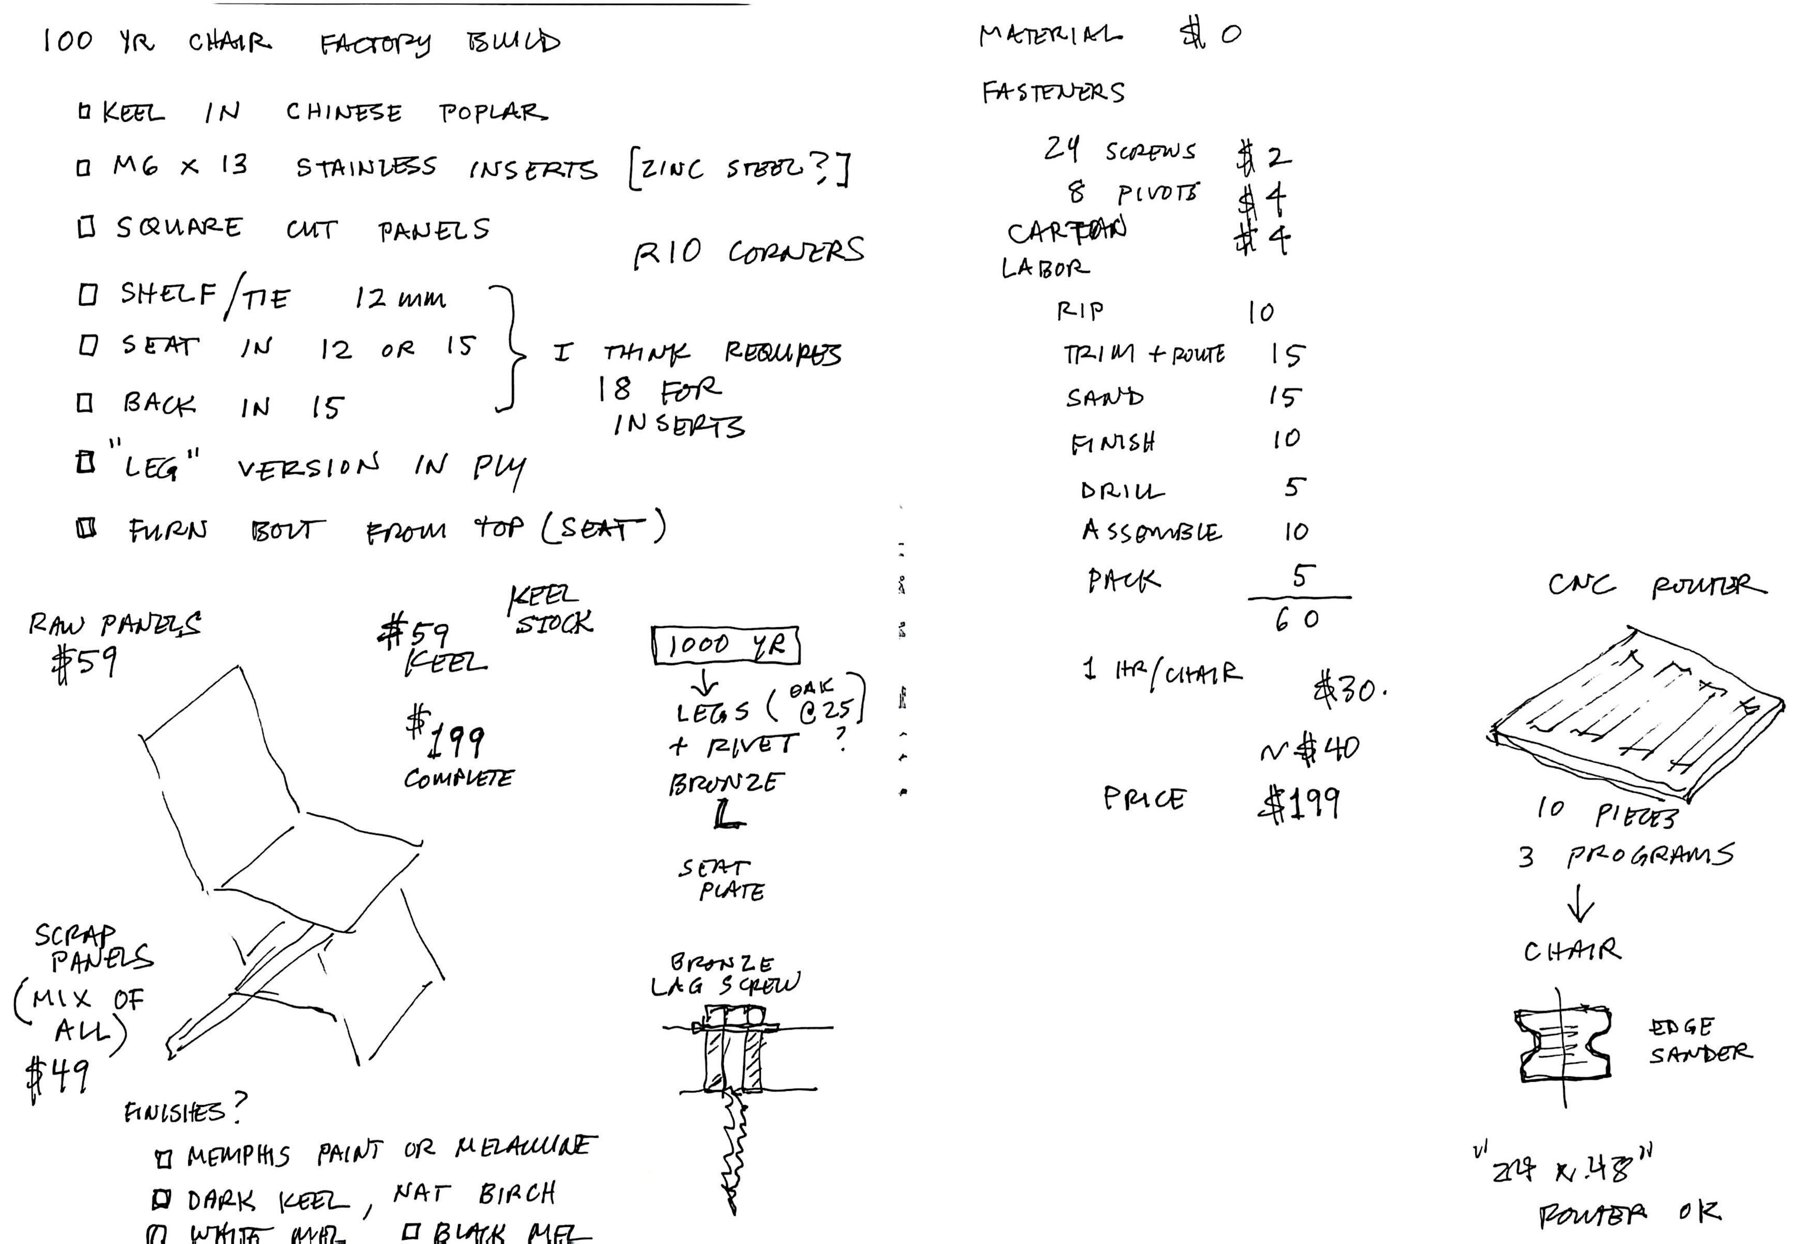 100 YR CHAIR FACTORY BUILD
KEEL IN CHINESE POPLAR
M6 X 13 STAINLESS INSERTS [ZINC STEEL?]
SQUARE CUT PANELS
R10 CORNERS
SHELF/TIE 12mm
SEAT IN 12 OR 15
BACK IN 15
I THINK REQUIRES
18 FOR
INSERTS
"LEG" VERSION IN PLY
FURN BOLT FROM TOP (SEAT)
RAW PANELS
$59
$59
KEEL
$199
COMPLETE
KEEL
STOCK
1000 YR
LEGS (OAK @25)
+ RIVET ?
BRONZE
L
SEAT
PLATE
BRONZE
LAG SCREW
SCRAP
PANELS
(MIX OF
ALL)
$49
FINISHES?
MEMPHIS PAINT OR MELAMINE
DARK KEEL, NAT BIRCH
WHITE MEL BLACK MEL
MATERIAL $0
FASTENERS
24 SCREWS $2
8 PIVOTS $4
CARTON $4
LABOR
RIP 10
TRIM + ROUTE 15
SAND 15
FINISH 10
DRILL 5
ASSEMBLE 10
PACK 5
60
1 HR/CHAIR $30.
~$40
PRICE $199
CNC ROUTER
10 PIECES
3 PROGRAMS
CHAIR
EDGE
SANDER
"24 x 48"
ROUTER OK